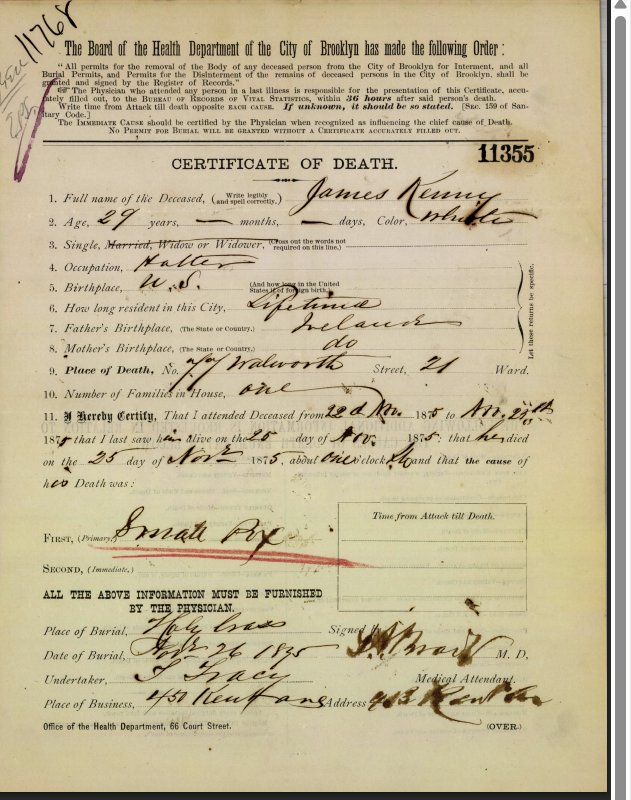 11768
The Board of the Health Department of the City of Brooklyn has made the following Order:
"All permits for removal of the Body of any deceased person from the City of Brooklyn for Interment, and all
Burial Permits, and Permits for the Disinterment of the remains of deceased persons in the City of Brooklyn, shall be
granted and signed by the Register of Records."
☞ The Physician who attended any person in a last illness is responsible for the presentation of this Certificate, accu-
rately filled out, to the BUREAU OF RECORDS OF VITAL STATISTICS, within 36 hours after said person's death.
Write time from Attack till Death opposite EACH CAUSE. If unknown, it should be so stated. [Sec. 159 of San-
itary Code.]
The IMMEDIATE CAUSE should be certified by the Physician when recognized as influencing the chief cause of Death.
NO PERMIT FOR BURIAL WILL BE GRANTED WITHOUT A CERTIFICATE ACCURATELY FILLED OUT.
11355
CERTIFICATE OF DEATH.
1. Full name of the Deceased, (Write legibly and spell correctly,) James Kenny
2. Age, 29 years, — months, — days, Color, White
3. Single, Married, Widow or Widower, (Cross out the words not required on this line.)
4. Occupation, Hatter
5. Birthplace, U. S. (And how long in the United States if of foreign birth.)
6. How long resident in this City, Lifetime
7. Father's Birthplace, (The State or Country.) Ireland
8. Mother's Birthplace, (The State or Country.) do
Let these returns be specific.
9. Place of Death, No. Walworth Street, 21 Ward.
10. Number of Families in House, one
11. I Hereby Certify, That I attended Deceased from 22d Nov. 1875 to Nov. 25th
1875 that I last saw him alive on the 25 day of Nov. 1875, that he died
on the 25 day of Nov 1875, about one o'clock and that the cause of
his Death was:
Time from Attack till Death.
FIRST, (Primary,) Small Pox
SECOND, (Immediate,)
ALL THE ABOVE INFORMATION MUST BE FURNISHED
BY THE PHYSICIAN.
Place of Burial, Holy Cross Signed by
Date of Burial, Nov 26 1875 M. D.,
Undertaker, T Tracy Medical Attendant.
Place of Business, 450 Kent Ave Address 413 Kent Av
Office of the Health Department, 66 Court Street. (OVER.)